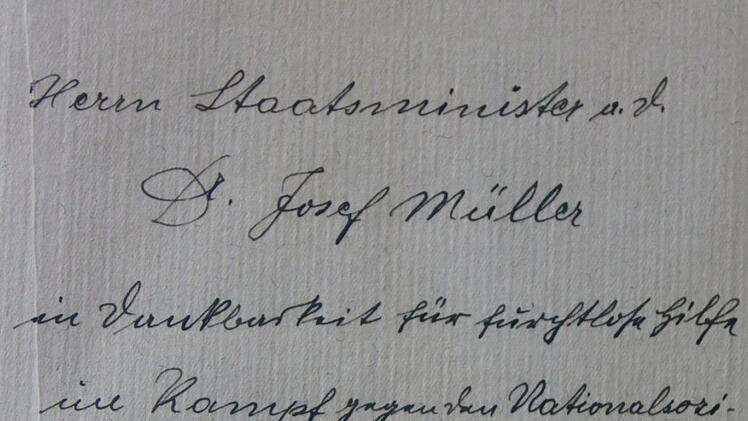 Herrn Staatsminister a. D.
Dr. Josef Müller
in Dankbarkeit für furchtlose Hilfe
im Kampf gegen den Nationalsozi-